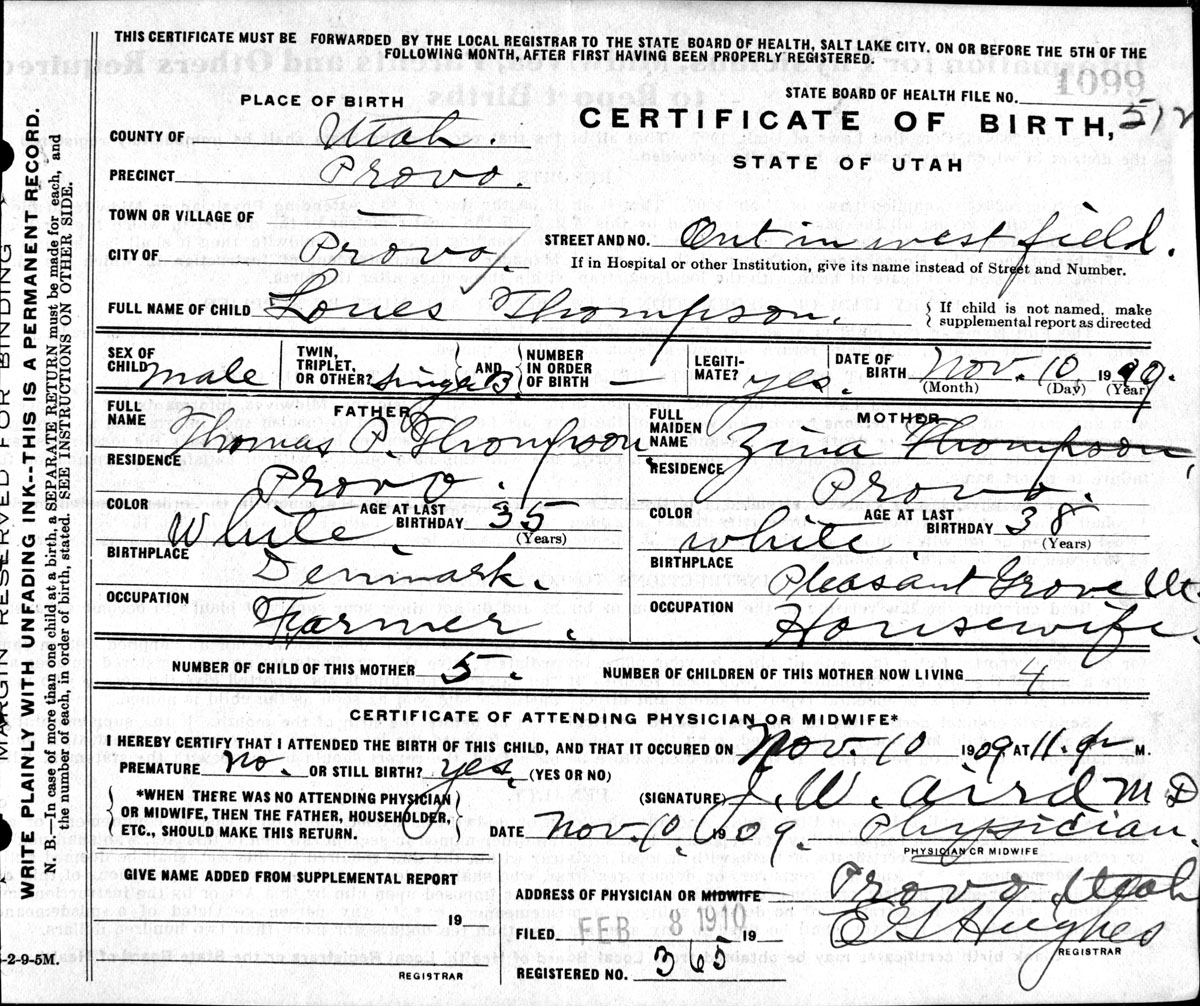 THIS CERTIFICATE MUST BE FORWARDED BY THE LOCAL REGISTRAR TO THE STATE BOARD OF HEALTH, SALT LAKE CITY, ON OR BEFORE THE 5TH OF THE
FOLLOWING MONTH, AFTER FIRST HAVING BEEN PROPERLY REGISTERED.
STATE BOARD OF HEALTH FILE NO.
PLACE OF BIRTH
CERTIFICATE OF BIRTH,
STATE OF UTAH
COUNTY OF Utah.
PRECINCT Provo.
TOWN OR VILLAGE OF
CITY OF Provo. STREET AND NO. Out in west field.
If in Hospital or other Institution, give its name instead of Street and Number.
FULL NAME OF CHILD Loues Thompson. If child is not named, make
supplemental report as directed
SEX OF CHILD male TWIN, TRIPLET, OR OTHER? AND NUMBER IN ORDER OF BIRTH — LEGITIMATE? yes. DATE OF BIRTH Nov. 10 1909.
(Month) (Day) (Year)
FATHER MOTHER
FULL NAME Thomas P. Thompson. FULL MAIDEN NAME Zina Thompson,
RESIDENCE Provo. RESIDENCE Provo.
COLOR White. AGE AT LAST BIRTHDAY 35 (Years) COLOR white. AGE AT LAST BIRTHDAY 38 (Years)
BIRTHPLACE Denmark BIRTHPLACE Pleasant Grove Ut.
OCCUPATION Farmer. OCCUPATION Housewife.
NUMBER OF CHILD OF THIS MOTHER 5. NUMBER OF CHILDREN OF THIS MOTHER NOW LIVING 4
CERTIFICATE OF ATTENDING PHYSICIAN OR MIDWIFE*
I HEREBY CERTIFY THAT I ATTENDED THE BIRTH OF THIS CHILD, AND THAT IT OCCURED ON Nov. 10 1909 AT 11. M.
PREMATURE No. OR STILL BIRTH? yes. (YES OR NO)
*WHEN THERE WAS NO ATTENDING PHYSICIAN
OR MIDWIFE, THEN THE FATHER, HOUSEHOLDER,
ETC., SHOULD MAKE THIS RETURN.
(SIGNATURE) J. W. Aird M D
DATE Nov. 10. 1909. Physician.
PHYSICIAN OR MIDWIFE
GIVE NAME ADDED FROM SUPPLEMENTAL REPORT
19
REGISTRAR
ADDRESS OF PHYSICIAN OR MIDWIFE Provo Utah
FILED FEB 8 1910 19 Hughes
REGISTRAR
REGISTERED NO. 365
MARGIN RESERVED FOR BINDING
WRITE PLAINLY WITH UNFADING INK--THIS IS A PERMANENT RECORD.
N. B.—In case of more than one child at a birth, a SEPARATE RETURN must be made for each, and
the number of each, in order of birth, stated. SEE INSTRUCTIONS ON OTHER SIDE.
-2-9-5M.